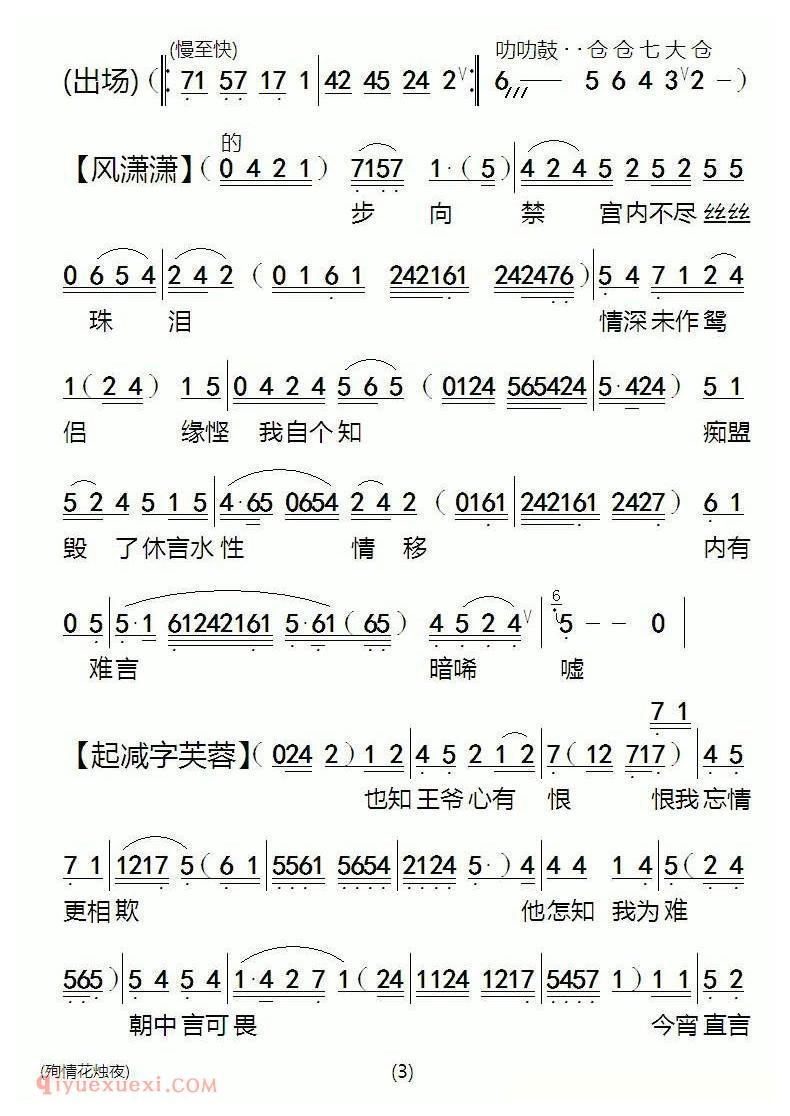 (慢至快) 叻叻鼓··仓仓七大仓
(出场) (𝄆 71 57 17 1 | 42 45 24 2 ∨ 𝄇 6 — 5 6 4 3 ∨ 2 - )
的
【风潇潇】( 0 4 2 1 ) 7157 1·(5) | 4 2 4 5 2 5 2 5 5
步 向 禁 宫内不尽丝丝
0 6 5 4 | 2 4 2 ( 0 1 6 1 242161 242476 ) | 5 4 7 1 2 4
珠 泪 情深未作鸳
1 ( 2 4 ) 1 5 | 0 4 2 4 5 6 5 ( 0124 565424 | 5·424 ) 5 1
侣 缘悭 我自个知 痴盟
5 2 4 5 1 5 | 4·65 0654 2 4 2 ( 0161 | 242161 2427 ) 6 1
毁 了休言水性 情移 内有
0 5 | 5·1 61242161 5·61 ( 65 ) 4 5 2 4 ∨ | 6 5 - - 0 |
难言 暗唏 嘘
7 1
【起减字芙蓉】( 024 2 ) 1 2 | 4 5 2 1 2 | 7 ( 12 717 ) | 4 5
也知王爷心有 恨 恨我忘情
7 1 | 1217 5 ( 6 1 | 5561 5654 | 2124 5· ) 4 | 4 4 1 4 | 5 ( 2 4
更相欺 他怎知 我为难
565 ) | 5 4 5 4 | 1·4 2 7 1 ( 24 | 1124 1217 | 5457 1 ) 1 1 | 5 2
朝中言可畏 今宵直言
(殉情花烛夜) (3)
qiyuexuexi.com